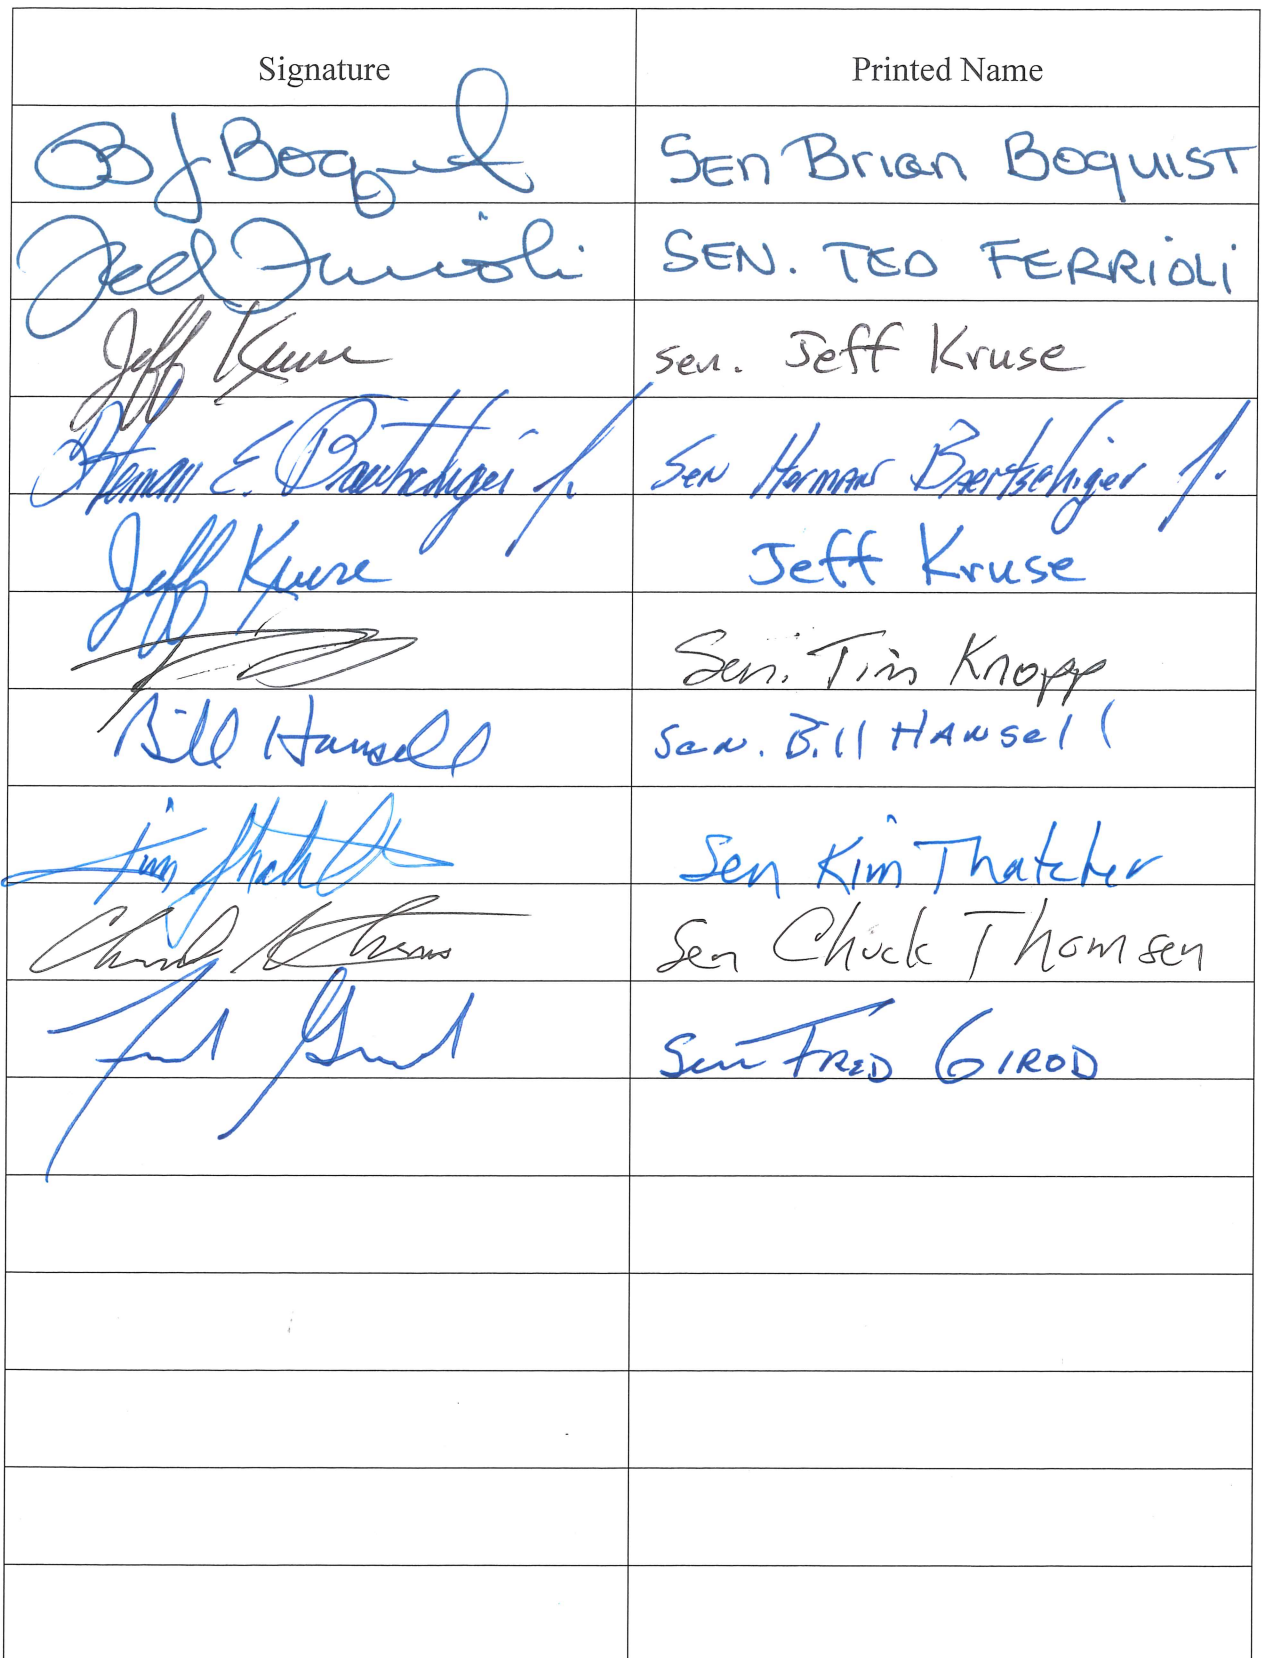 Signature Printed Name
BJ Boquist SEN Brian BOQUIST
Ted Ferrioli SEN. TED FERRIOLI
Jeff Kruse Sen. Jeff Kruse
Herman E. Baertschiger Jr. Sen Herman Baertschiger Jr.
Jeff Kruse Jeff Kruse
Sen. Tim Knopp
Bill Hansell Sen. Bill HANSell
Kim Thatcher Sen Kim Thatcher
Chuck Thomsen Sen Chuck Thomsen
Fred Girod Sen FRED GIROD